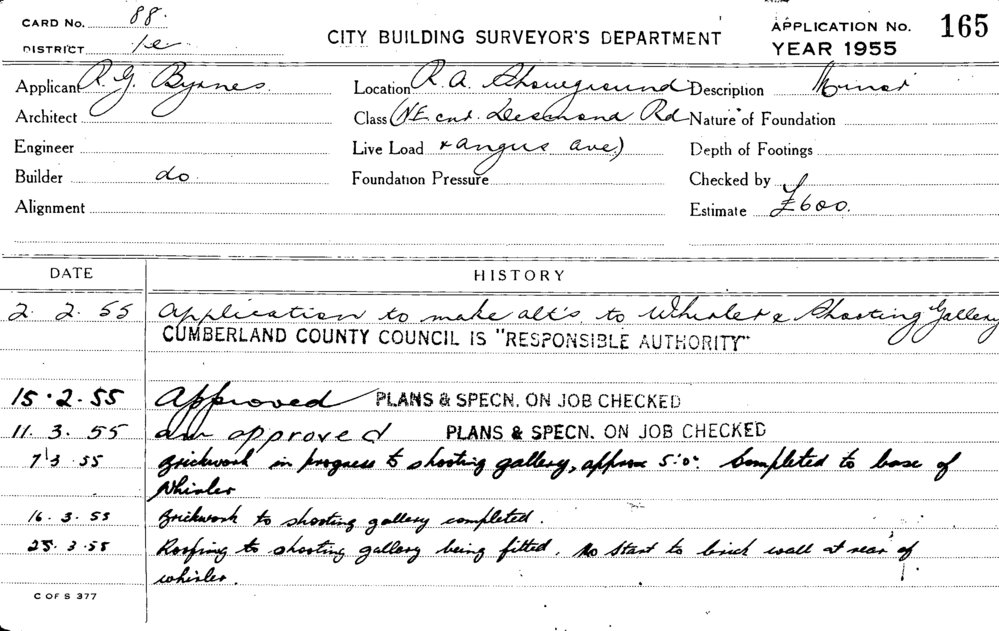 CARD No. 88.
DISTRICT 1e
CITY BUILDING SURVEYOR'S DEPARTMENT
APPLICATION No. 165
YEAR 1955
Applicant R. G. Byrnes. Location R. A. Showground Description Minor
Architect Class (NE cnr. Desmond Rd Nature of Foundation
Engineer Live Load & Angus Ave) Depth of Footings
Builder do. Foundation Pressure Checked by
Alignment Estimate £600.
DATE HISTORY
2. 2. 55 Application to make alt's to Whirler & Shooting Gallery
CUMBERLAND COUNTY COUNCIL IS "RESPONSIBLE AUTHORITY"
15.2.55 Approved PLANS & SPECN. ON JOB CHECKED
11. 3. 55 am approved PLANS & SPECN. ON JOB CHECKED
7/3 55 Brickwork in progress to shooting gallery, approx 5'.0". Completed to base of
Whirler
16. 3. 55 Brickwork to shooting gallery completed.
25. 3. 55 Roofing to shooting gallery being fitted. No start to brick wall at rear of
whirler.
C OF S 377